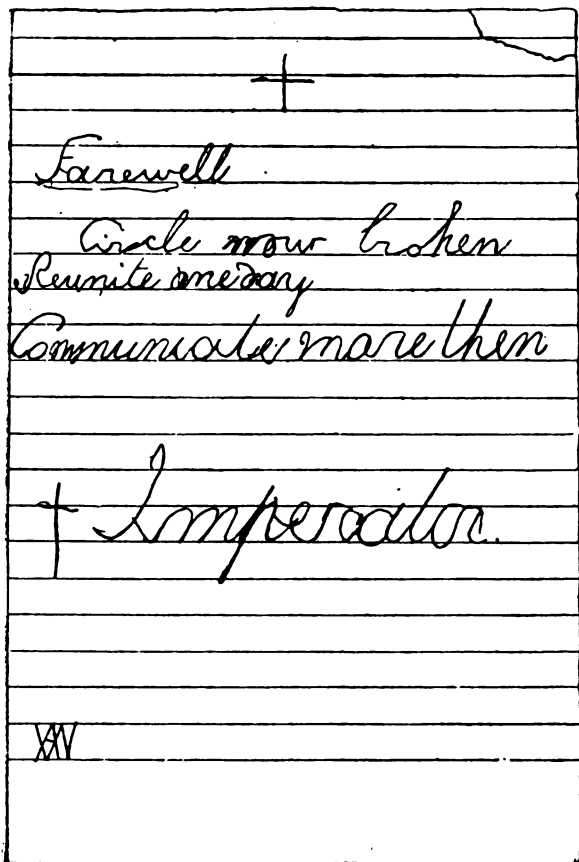 Farewell.
Circle now broken
Reunite one day
Communicate more then
Imperator.